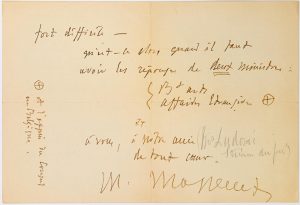 fort difficile —
qu'est-ce alors quand il faut
avoir les réponses de deux ministères :
{ B^x arts
affaires étrangères ⊕
et
à vous, à notre ami
de tout cœur.
M. Massenet
⊕ et l'appui du Consul
en Belgique.